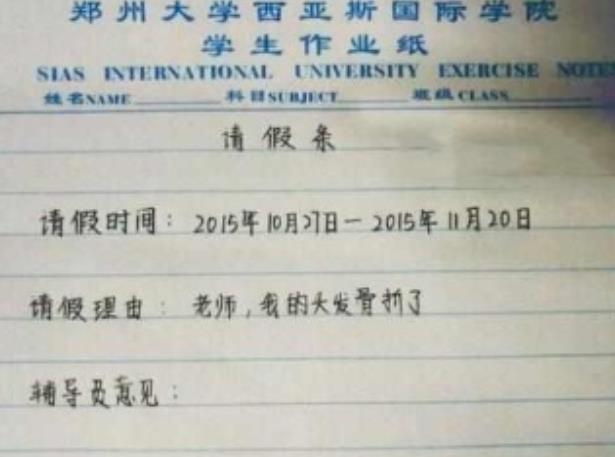 郑州大学西亚斯国际学院
学生作业纸
SIAS INTERNATIONAL UNIVERSITY EXERCISE NOTE
姓名NAME 科目SUBJECT 班级CLASS
请假条
请假时间：2015年10月27日—2015年11月20日
请假理由：老师，我的头发骨折了
辅导员意见：